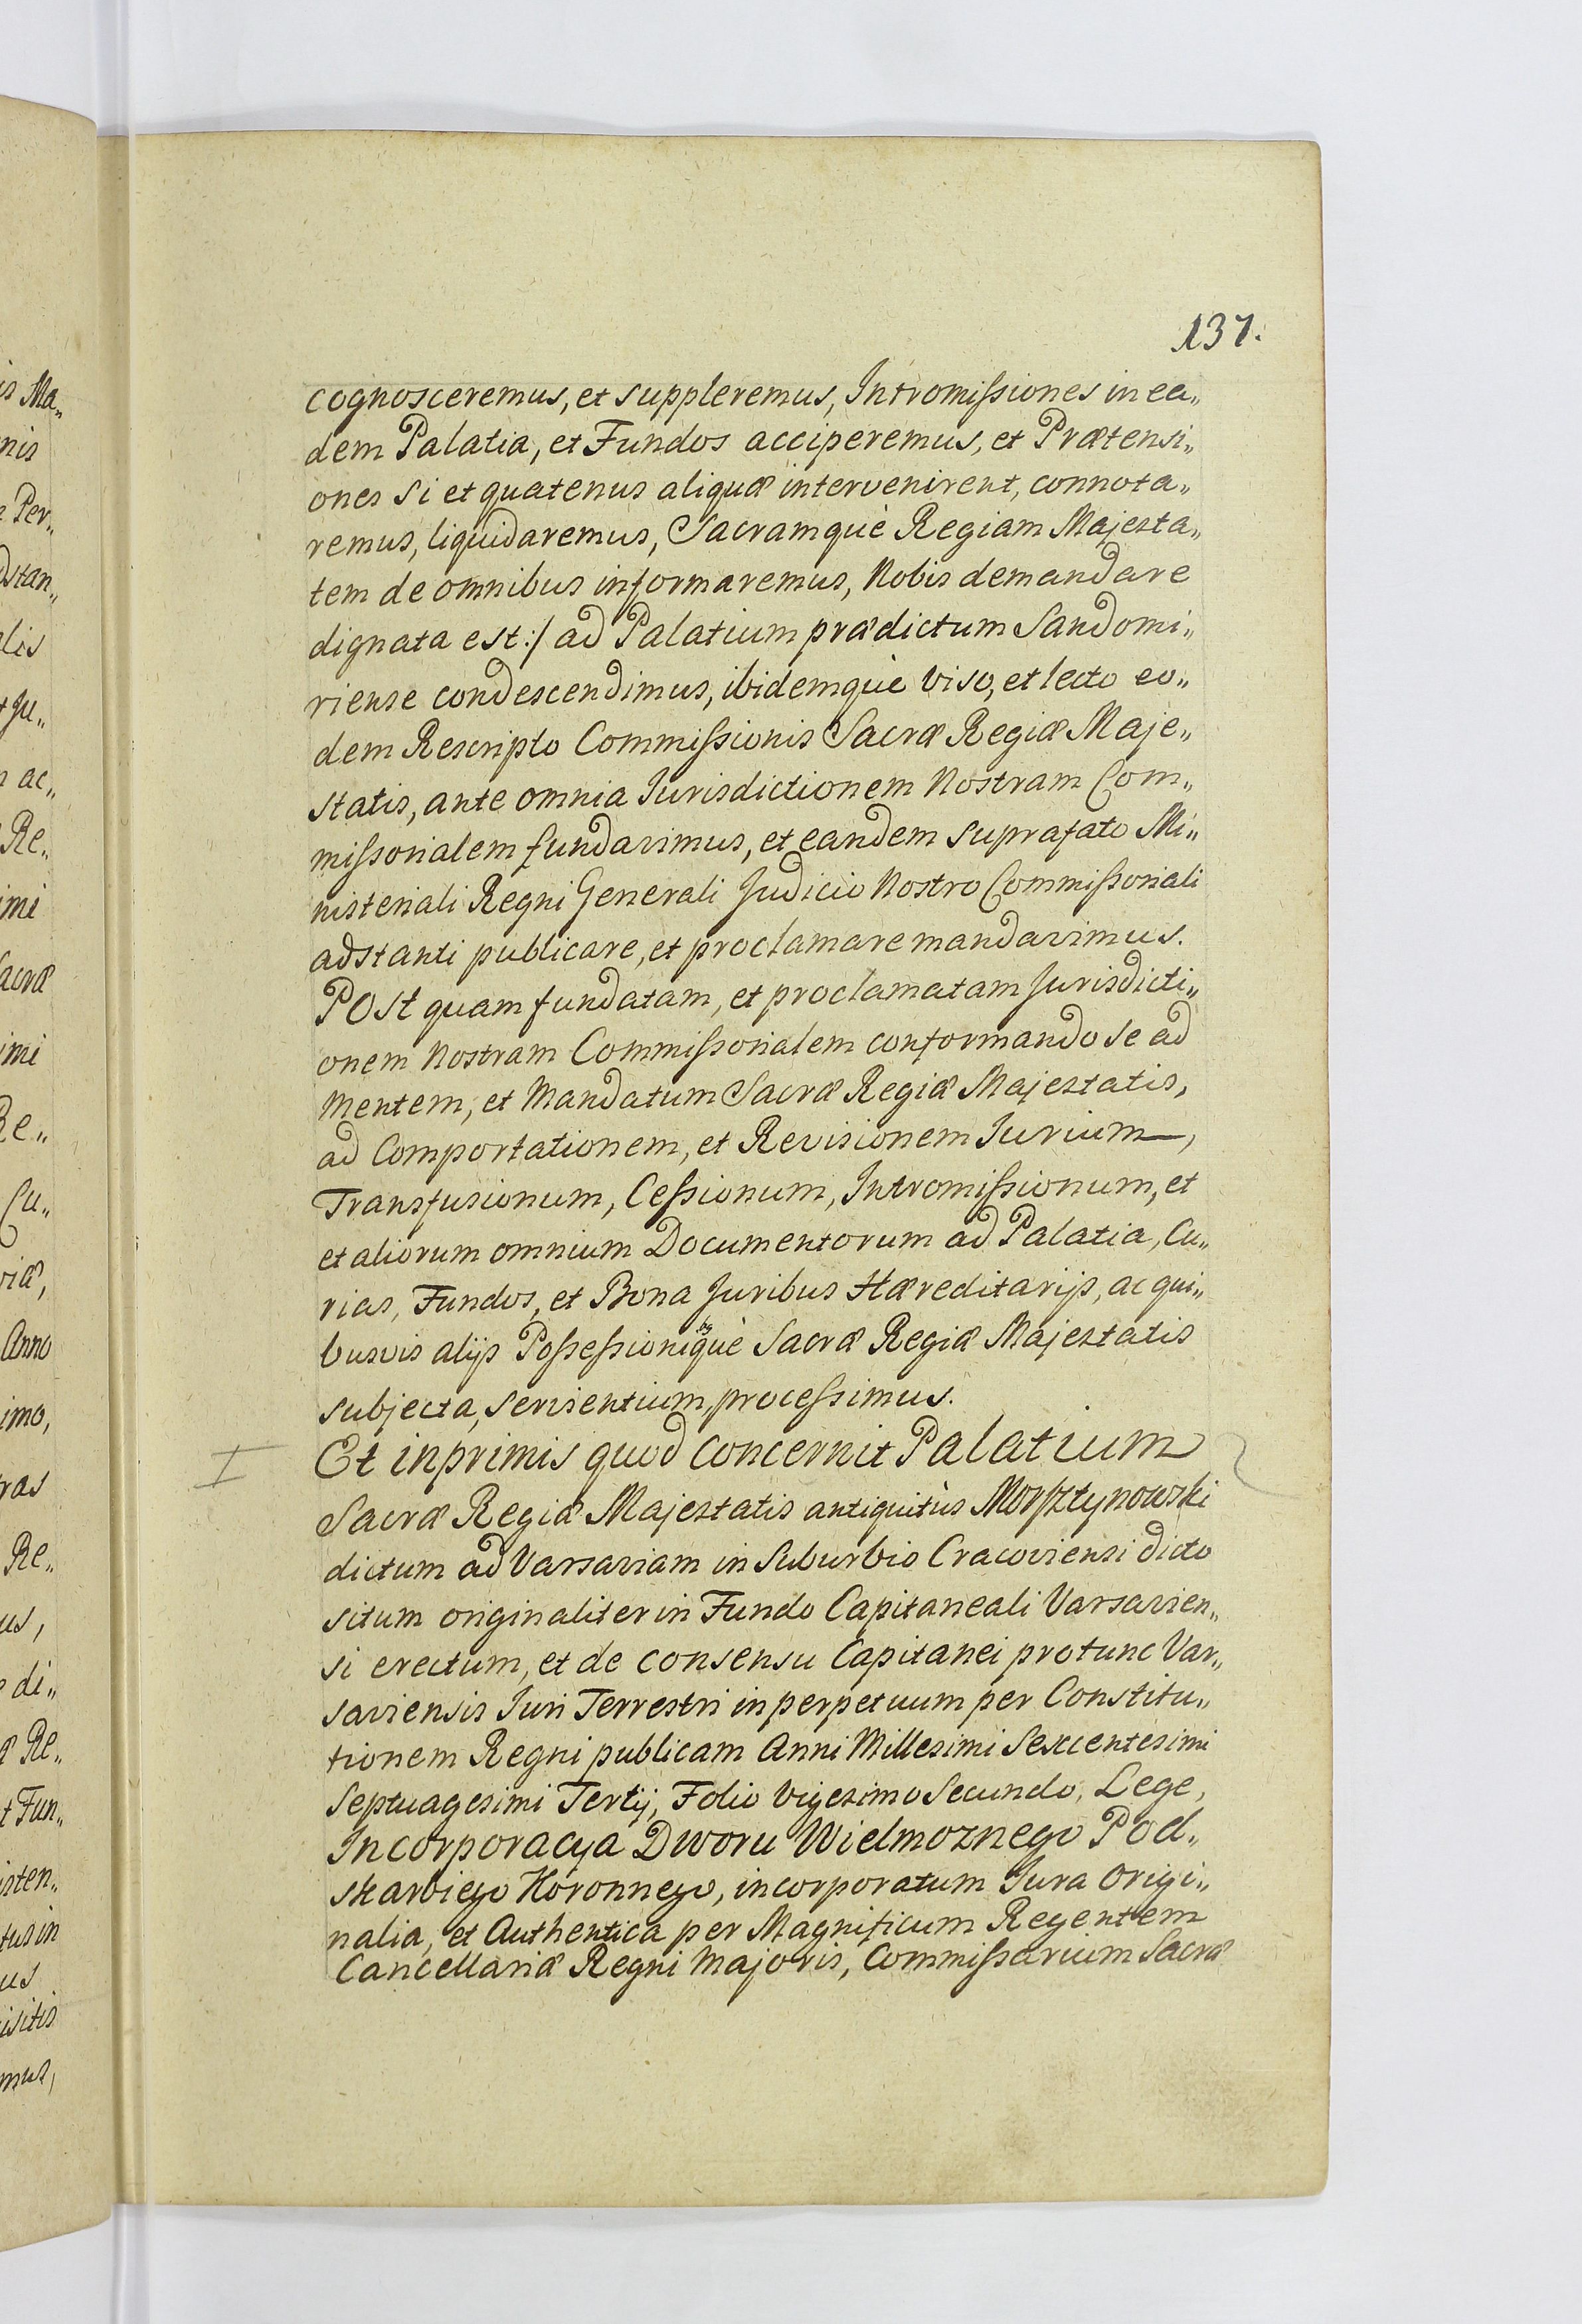 137.
cognosceremus, et suppleremus, Intromiſsiones in ea„
dem Palatia, et Fundos acciperemus, et Prætensi„
ones si et quatenus aliquæ intervenirent, connota„
remus, liquidaremus, Sacramquè Regiam Majesta„
tem de omnibus informaremus, Nobis demandare
dignata est:/ ad Palatium prædictum Sandomi„
riense condescendimus, ibidemquè viso, et lecto eo„
dem Rescripto Commiſsionis Sacræ Regiæ Maje„
statis, ante omnia Jurisdictionem Nostram Com„
miſsorialem fundavimus, et eandem suprafato Mi„
nisteriali Regni Generali Judicio Nostro Commiſsoriali
adstanti publicare, et proclamare mandavimus.
POst quam fundatam, et proclamatam Jurisdicti„
onem Nostram Commiſsorialem conformando se ad
Mentem, et Mandatum Sacræ Regiæ Majestatis,
ad Comportationem, et Revisionem Jurium,
Transfusionum, Ceſsionum, Intromiſsionum, et
et aliorum omnium Documentorum ad Palatia, Cu„
rias, Fundos, et Bona Juribus Hæreditarijs, ac qui„
busvis alijs Poſseſsioniquè Sacræ Regiæ Majestatis
subjecta, servientium, proceſsimus.
I Et inprimis quod concernit Palatium
Sacræ Regiæ Majestatis antiquitùs Morſztynowski
dictum ad Varsaviam in Suburbio Cracoviensi dicto
situm originaliter in Fundo Capitaneali Varsavien„
si erectum, et de consensu Capitanei protunc Var„
saviensis Juri Terrestri in perpetuum per Constitu„
tionem Regni publicam Anni Millesimi Sexcentesimi
Septuagesimi Tertij, Folio Vigesimo Secundo, Lege,
Incorporacya Dworu Wielmoznego Pod„
skarbiego Koronnego, incorporatum Jura Origi„
nalia, et Authentica per Magnificum Regentem
Cancellariæ Regni Majoris, Commiſsarium Sacræ